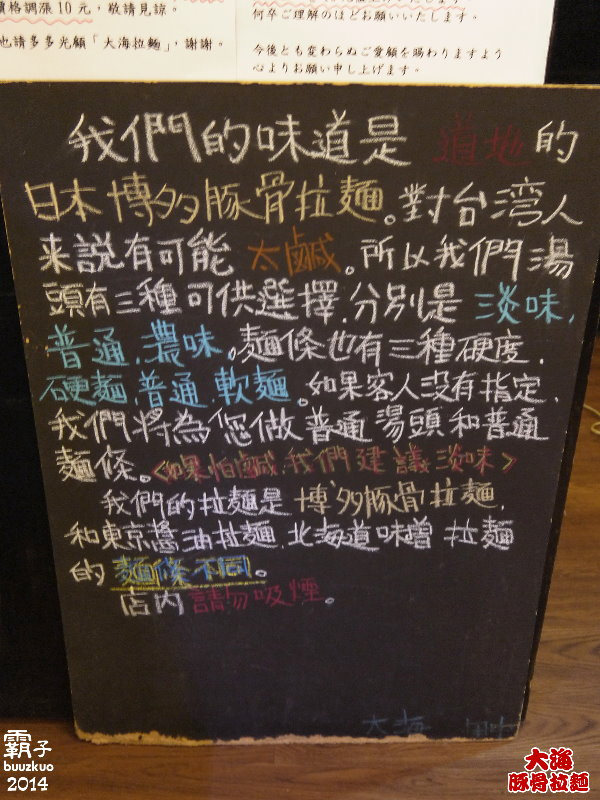 價格調漲10元,敬請見諒。
也請多多光顧「大海拉麵」,謝謝。
何卒ご理解のほどお願いいたします。
今後とも変わらぬご愛顧を賜わりますよう
心よりお願い申し上げます。
我們的味道是 道地的
日本博多豚骨拉麵。對台湾人
来説有可能 太鹹。所以我們湯
頭有三種可供選擇,分別是 淡味,
普通,濃味。麵條也有三種硬度,
硬麵,普通,軟麵。如果客人没有指定,
我們將為您做普通湯頭和普通
麵條。<如果怕鹹,我們建議淡味>
我們的拉麵是 博多豚骨拉麵,
和東京醬油拉麵,北海道味噌拉麵
的 麵條不同。
店内請勿吸煙。
大海
霸子
buuzkuo
2014
大海
豚骨拉麵